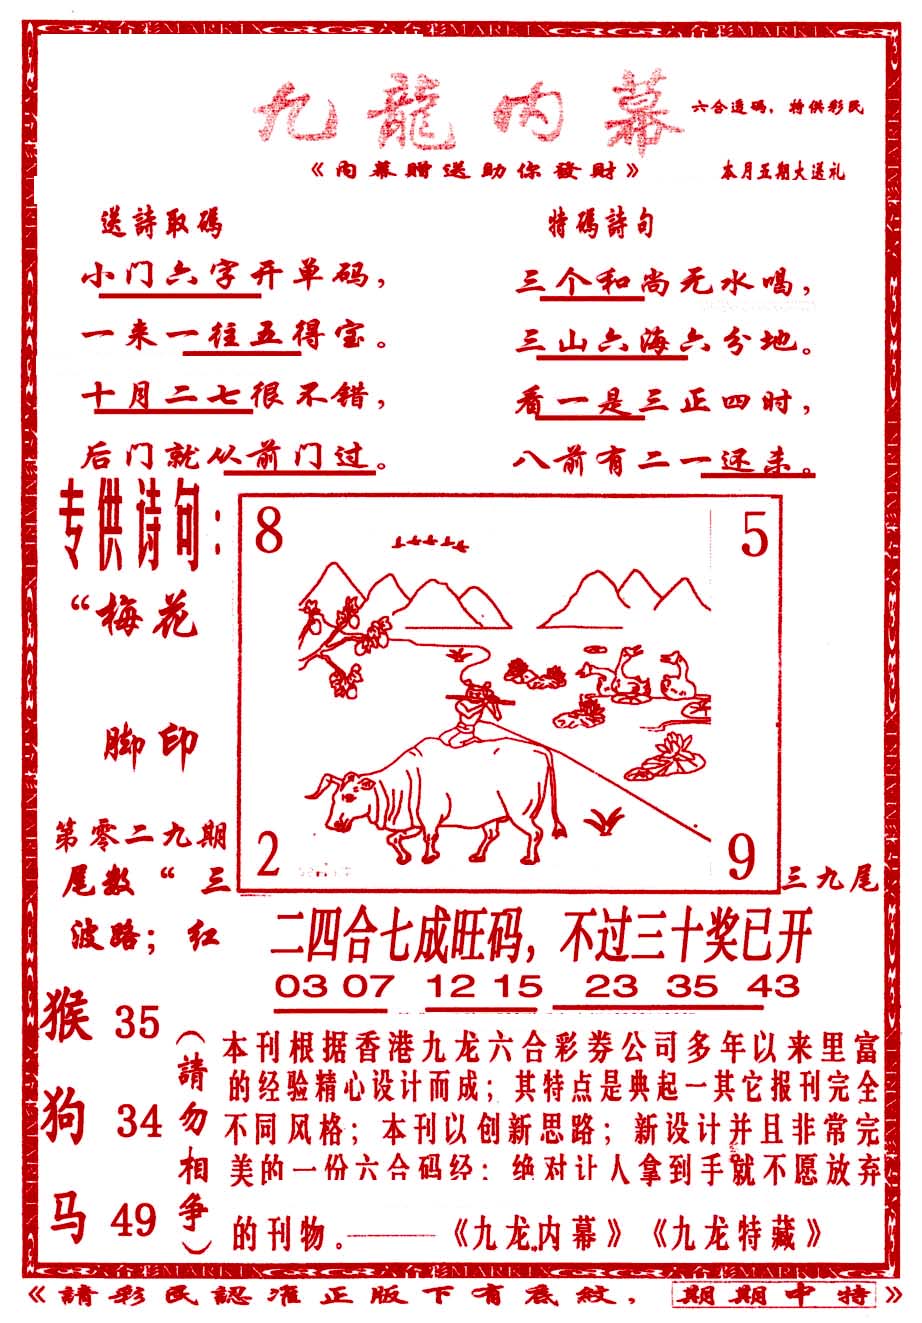 九龍内幕
六合透码，特供彩民
《内幕赠送助你發財》
本月五期大送礼
送詩取碼
小门六字开单码，
一来一往五得宝。
十月二七很不错，
后门就从前门过。
特碼詩句
三个和尚无水喝，
三山六海六分地。
看一是三正四时，
八前有二一还来。
专供诗句：
“梅花
脚印
8
5
2
9
第零二九期
尾数“三
三九尾
波路；红
二四合七成旺码，不过三十奖已开
03 07 12 15 23 35 43
猴 35
狗 34
马 49
（請勿相争）
本刊根据香港九龙六合彩券公司多年以来里富
的经验精心设计而成；其特点是典起一其它报刊完全
不同风格；本刊以创新思路；新设计并且非常完
美的一份六合码经；绝对让人拿到手就不愿放弃
的刊物。——《九龙内幕》《九龙特藏》
《請彩民認准正版下有底紋，期期中特》